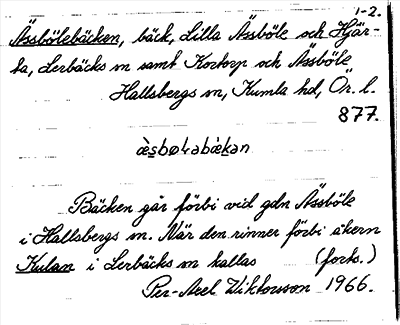 1-2.
Ässbölebäcken, bäck, Lilla Ässböle och Hjär-
ta, Lerbäcks sn samt Kortorp och Ässböle
Hallsbergs sn, Kumla hd, Ör. l.
877.
æ̀sbølabæ̀kan
Bäcken går förbi vid gdn Ässböle
i Hallsbergs sn. När den rinner förbi åkern
Kulan i Lerbäcks sn kallas (forts.)
Per-Axel Wiktorsson 1966.